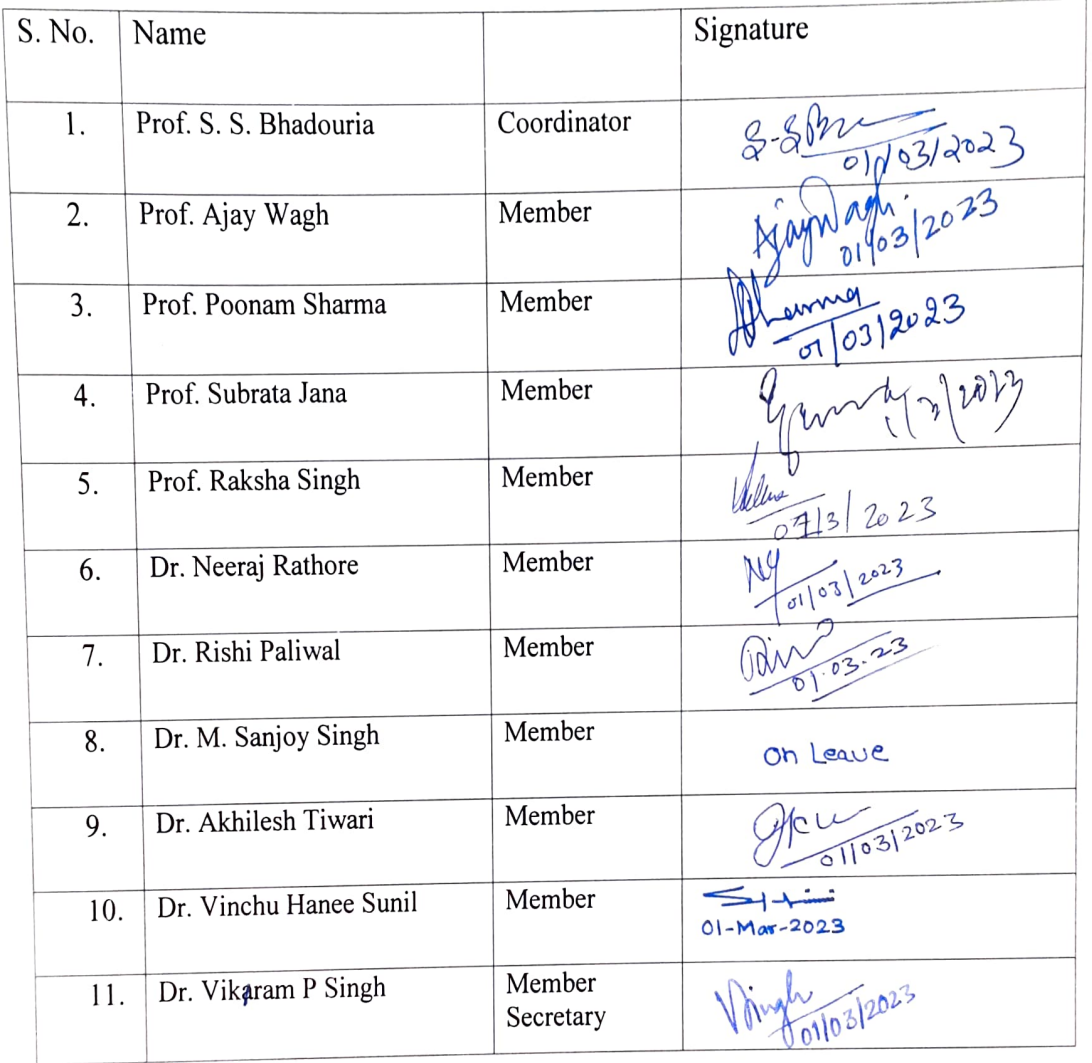 S. No. Name Signature
1. Prof. S. S. Bhadouria Coordinator
01/03/2023
2. Prof. Ajay Wagh Member Ajay Wagh.
01/03/2023
3. Prof. Poonam Sharma Member Sharma
01/03/2023
4. Prof. Subrata Jana Member 1/3/2023
5. Prof. Raksha Singh Member
01/3/2023
6. Dr. Neeraj Rathore Member
01/03/2023
7. Dr. Rishi Paliwal Member
01.03.23
8. Dr. M. Sanjoy Singh Member On Leave
9. Dr. Akhilesh Tiwari Member
01/03/2023
10. Dr. Vinchu Hanee Sunil Member
01-Mar-2023
11. Dr. Vikaram P Singh Member
Secretary VSingh
01/03/2023